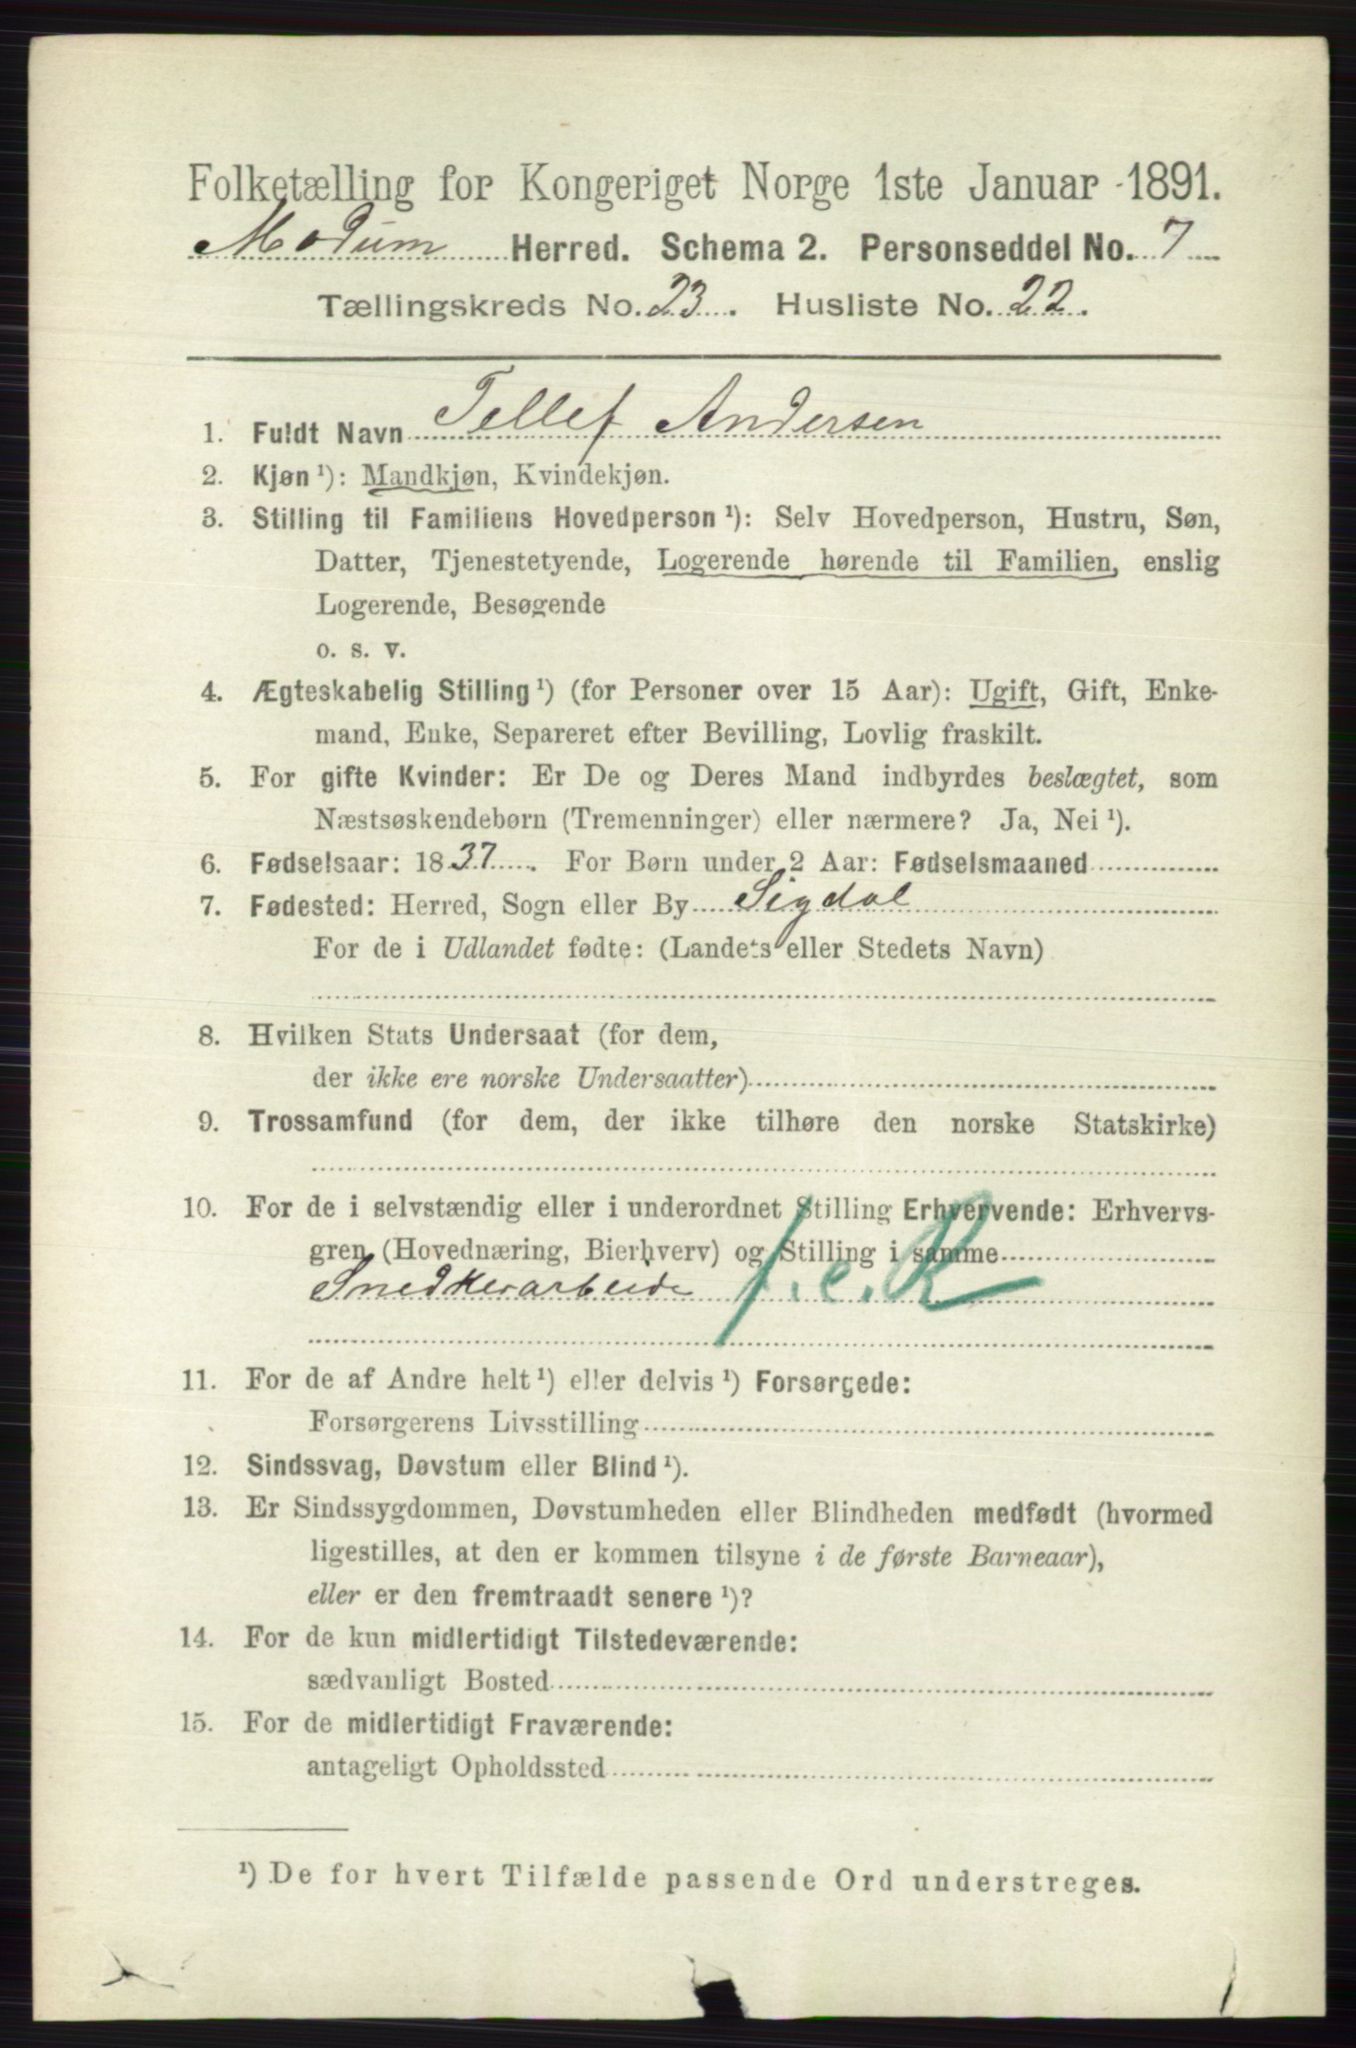 Folketælling for Kongeriget Norge 1ste Januar 1891.
Modum Herred. Schema 2. Personseddel No. 7
Tællingskreds No. 23. Husliste No. 22.
1. Fuldt Navn Tellef Andersen
2. Kjøn ¹): Mandkjøn, Kvindekjøn.
3. Stilling til Familiens Hovedperson ¹): Selv Hovedperson, Hustru, Søn,
Datter, Tjenestetyende, Logerende hørende til Familien, enslig
Logerende, Besøgende
o. s. v.
4. Ægteskabelig Stilling ¹) (for Personer over 15 Aar): Ugift, Gift, Enke-
mand, Enke, Separeret efter Bevilling, Lovlig fraskilt.
5. For gifte Kvinder: Er De og Deres Mand indbyrdes beslægtet, som
Næstsøskendebørn (Tremenninger) eller nærmere? Ja, Nei ¹).
6. Fødselsaar: 1837. For Børn under 2 Aar: Fødselsmaaned
7. Fødested: Herred, Sogn eller By Sigdal
For de i Udlandet fødte: (Landets eller Stedets Navn)
8. Hvilken Stats Undersaat (for dem,
der ikke ere norske Undersaatter)
9. Trossamfund (for dem, der ikke tilhøre den norske Statskirke)
10. For de i selvstændig eller i underordnet Stilling Erhvervende: Erhvervs-
gren (Hovednæring, Bierhverv) og Stilling i samme
Snedkerarbeide f.e.R
11. For de af Andre helt ¹) eller delvis ¹) Forsørgede:
Forsørgerens Livsstilling
12. Sindssvag, Døvstum eller Blind ¹).
13. Er Sindssygdommen, Døvstumheden eller Blindheden medfødt (hvormed
ligestilles, at den er kommen tilsyne i de første Barneaar),
eller er den fremtraadt senere ¹)?
14. For de kun midlertidigt Tilstedeværende:
sædvanligt Bosted
15. For de midlertidigt Fraværende:
antageligt Opholdssted
¹) De for hvert Tilfælde passende Ord understreges.